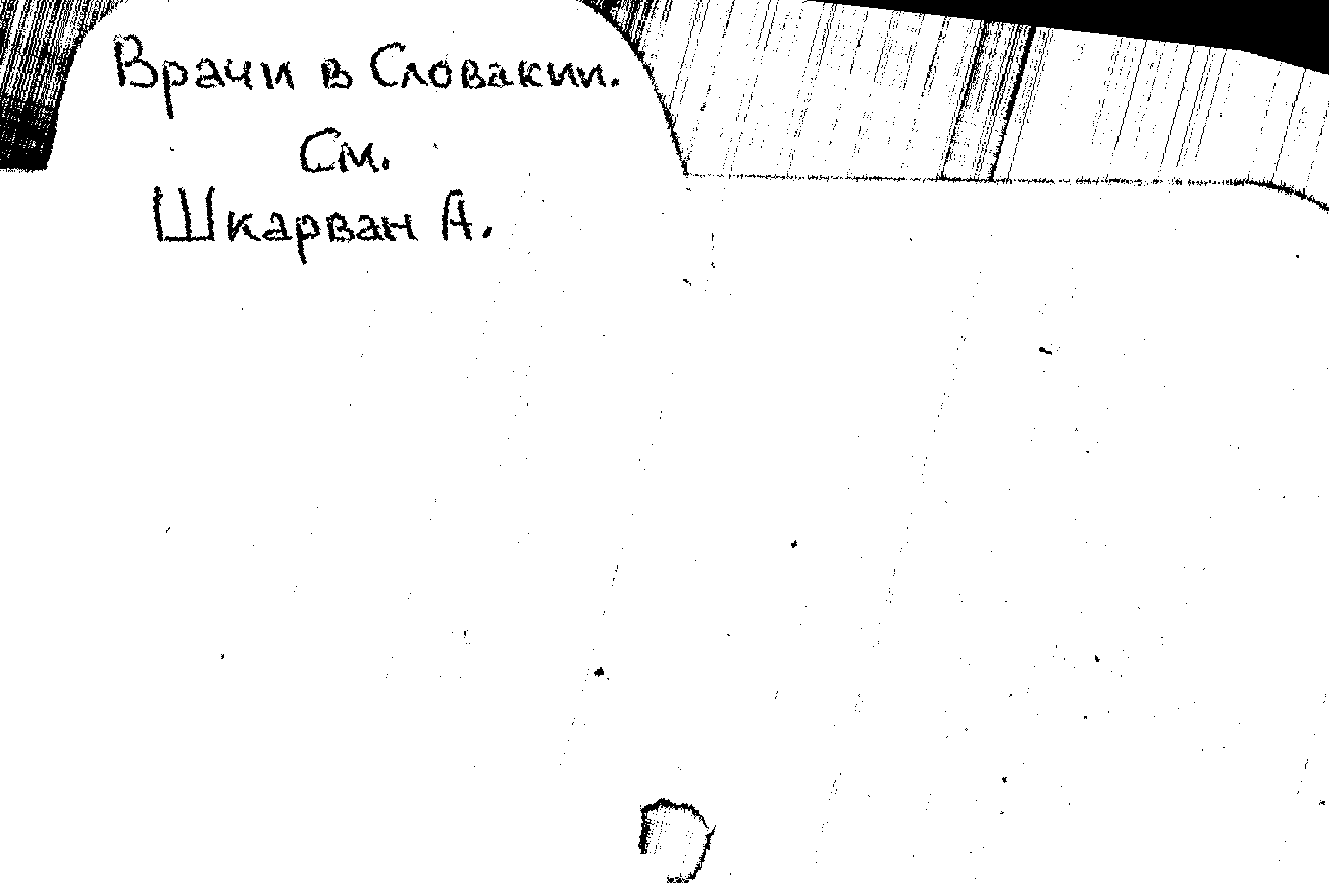 Врачи в Словакии.
См.
Шкарван А.